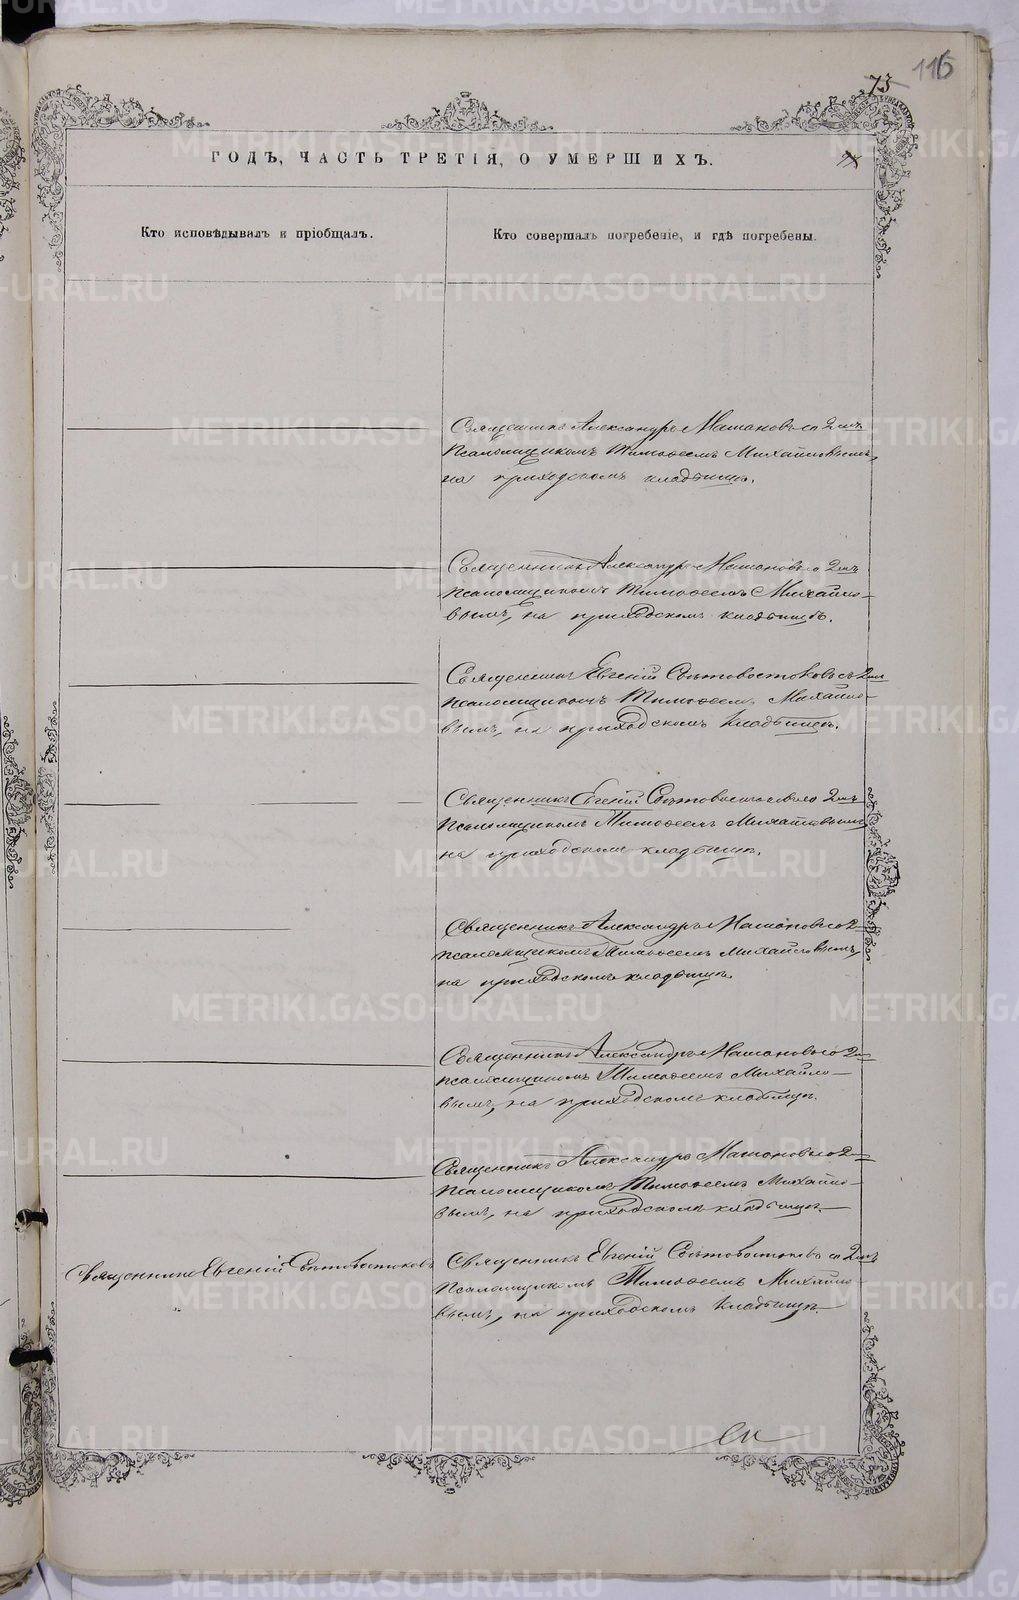 73 116
ГОДЪ, ЧАСТЬ ТРЕТІЯ, О УМЕРШИХЪ.
Кто исповѣдывалъ и пріобщалъ.
Кто совершалъ погребеніе, и гдѣ погребены.
Священникъ Александръ Машановъ со 2мъ
псаломщикомъ Тимоѳеемъ Михайловымъ,
на приходскомъ кладбищѣ.
Священникъ Александръ Машановъ со 2мъ
псаломщикомъ Тимоѳеемъ Михайло-
вымъ, на приходскомъ кладбищѣ.
Священникъ Евгеній Свѣтовостоковъ съ 2мъ
псаломщикомъ Тимоѳеемъ Михайло-
вымъ, на приходскомъ кладбищѣ.
Священникъ Евгеній Свѣтовостоковъ со 2мъ
псаломщикомъ Тимоѳеемъ Михайловымъ
на приходскомъ кладбищѣ.
Священникъ Александръ Машановъ со 2
псаломщикомъ Тимоѳеемъ Михайловымъ,
на приходскомъ кладбищѣ.
Священникъ Александръ Машановъ со 2мъ
псаломщикомъ Тимоѳеемъ Михайло-
вымъ, на приходскомъ кладбищѣ.
Священникъ Александръ Машановъ со 2мъ
псаломщикомъ Тимоѳеемъ Михайло-
вымъ, на приходскомъ кладбищѣ.
Священникъ Евгеній Свѣтовостоковъ
Священникъ Евгеній Свѣтовостоковъ со 2мъ
псаломщикомъ Тимоѳеемъ Михайло-
вымъ, на приходскомъ кладбищѣ.
METRIKI.GASO-URAL.RU